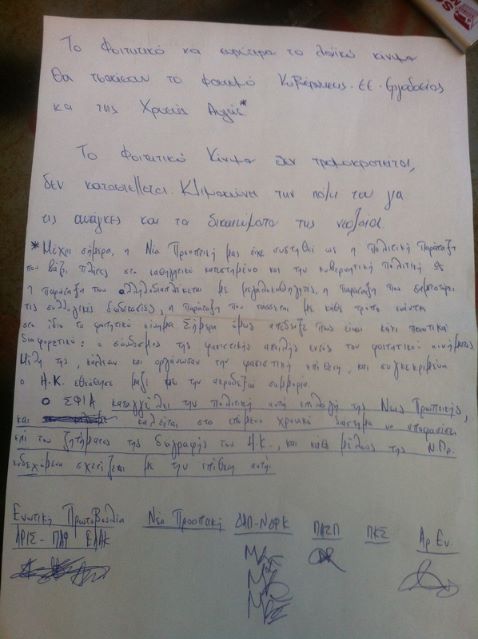 Το Φοιτητικό και ευρύτερα το λαϊκό κίνημα
θα τσακίσουν το φασισμό Κυβέρνησης - ΕΕ - Εργοδοσίας
και της Χρυσής Αυγής*
Το Φοιτητικό Κίνημα δεν τρομοκρατείται,
δεν καταστέλλεται. Κλιμακώνει την πάλη του για
τις ανάγκες και τα δικαιώματα της νεολαίας.
*Μέχρι σήμερα, η Νέα Προοπτική μας έχει συστηθεί ως η πολιτική παράταξη
που βάζει πλάτες στο καθηγητικό κατεστημένο και την κυβερνητική πολιτική, ως
η παράταξη που αλληλοδιαπλέκεται με μεγαλοκαθηγητές, η παράταξη που
τις συλλογικές διαδικασίες, η παράταξη που τάσσεται με κάθε τρόπο ενάντια
στο ίδιο το φοιτητικό κίνημα. Σήμερα όμως απέδειξε πως είναι κάτι ποιοτικά
διαφορετικό: ο σύνδεσμος της φασιστικής απειλής εντός του φοιτητικού κινήματος.
Μέλη της, κάλεσαν και οργάνωσαν την φασιστική επίθεση, και συγκεκριμένα
ο Α.Κ. επιτέθηκε μαζί με την ακροδεξιά συμμορία.
Ο ΣΦΙΑ καταγγέλλει την πολιτική αυτή επιλογή της Νέας Προοπτικής,
και καλείται στο επόμενο χρονικό διάστημα να αποφασίσει
επί του ζητήματος της διαγραφής του Α.Κ., και κάθε μέλους της Ν.Πρ.
ενδεχόμενα σχετίζεται με την επίθεση αυτή.
Ενωτική Πρωτοβουλία Νέα Προοπτική ΔΑΠ-ΝΔΦΚ ΠΑΣΠ ΠΚΣ Αρ.Εν.
ΑΡΙΣ - ΠΑΦ ΕΑΑΚ